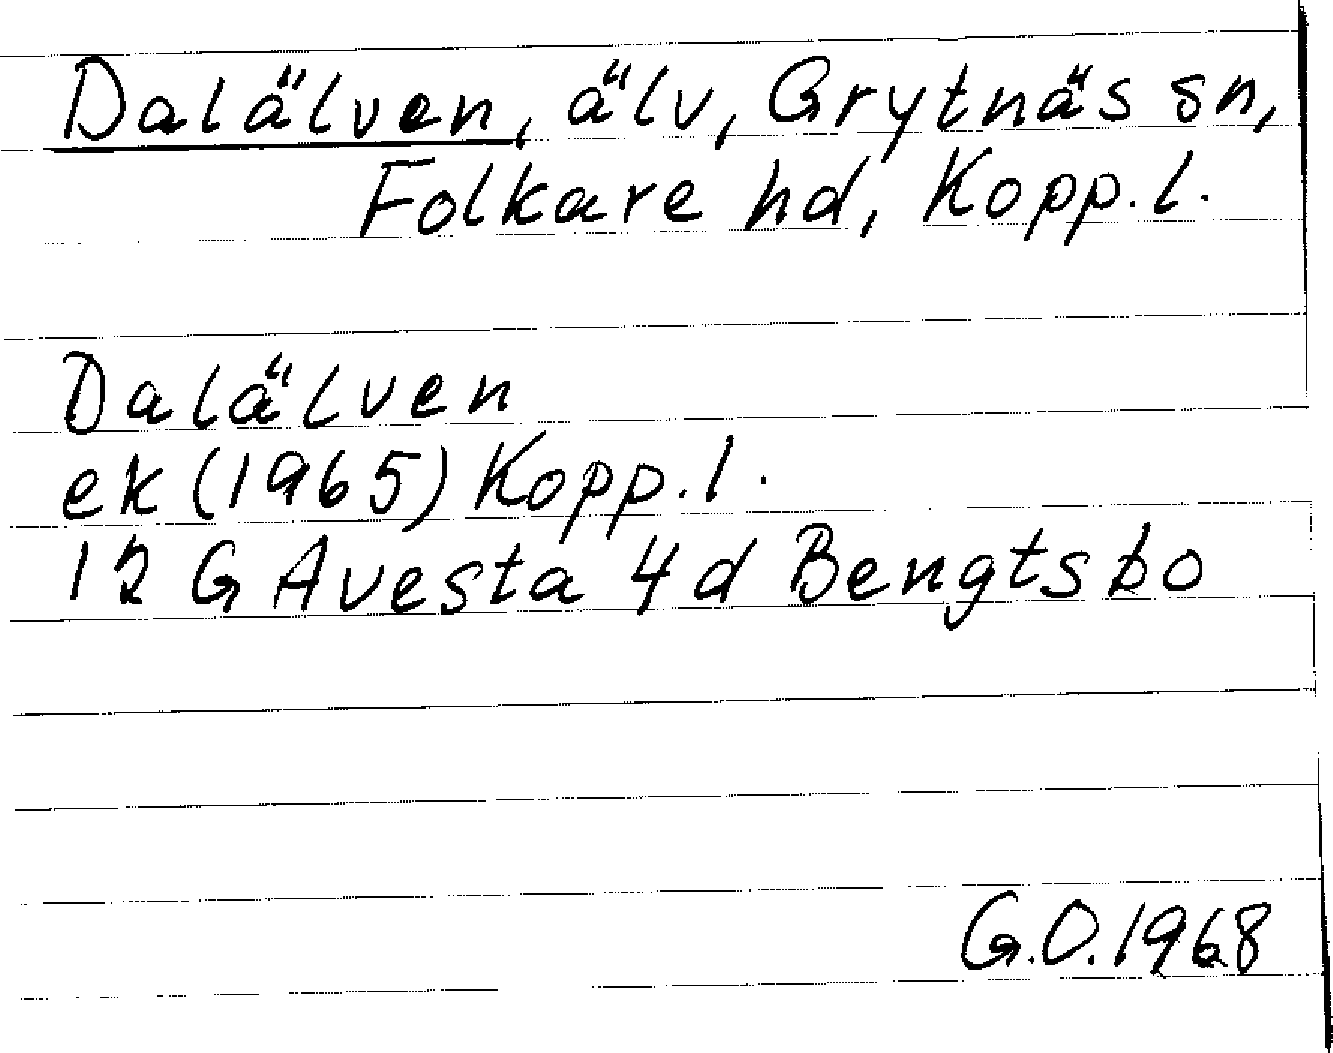 Dalälven, älv, Grytnäs sn,
Folkare hd, Kopp.l.
Dalälven
ek (1965) Kopp.l.
12 G Avesta 4 d Bengtsbo
G.O. 1968